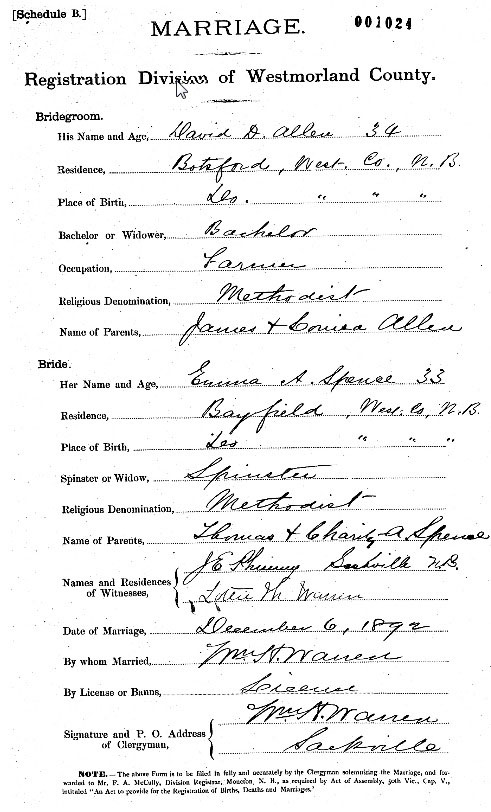 [Schedule B.]
001024
MARRIAGE.
Registration Division of Westmorland County.
Bridegroom.
His Name and Age, David D. Allen 34
Residence, Botsford, West. Co., N.B.
Place of Birth, Do. " " "
Bachelor or Widower, Bachelor
Occupation, Farmer
Religious Denomination, Methodist
Name of Parents, James & Louisa Allen
Bride.
Her Name and Age, Emma A. Spence 33
Residence, Bayfield, West. Co, N.B.
Place of Birth, Do " " "
Spinster or Widow, Spinster
Religious Denomination, Methodist
Name of Parents, Thomas & Charity A Spence
J E Phinney Sackville N.B.
Names and Residences
of Witnesses, Warren
Date of Marriage, December 6, 1892
By whom Married, Wm. H. Warren
By License or Banns, License
Wm. H. Warren
Signature and P. O. Address
of Clergyman, Sackville
NOTE.—The above Form is to be filled in fully and accurately by the Clergyman solemnizing the Marriage, and for-
warded to Mr. F. A. McCully, Division Registrar, Moncton, N. B., as required by Act of Assembly, 50th Vic., Cap. V.,
intituled "An Act to provide for the Registration of Births, Deaths and Marriages."